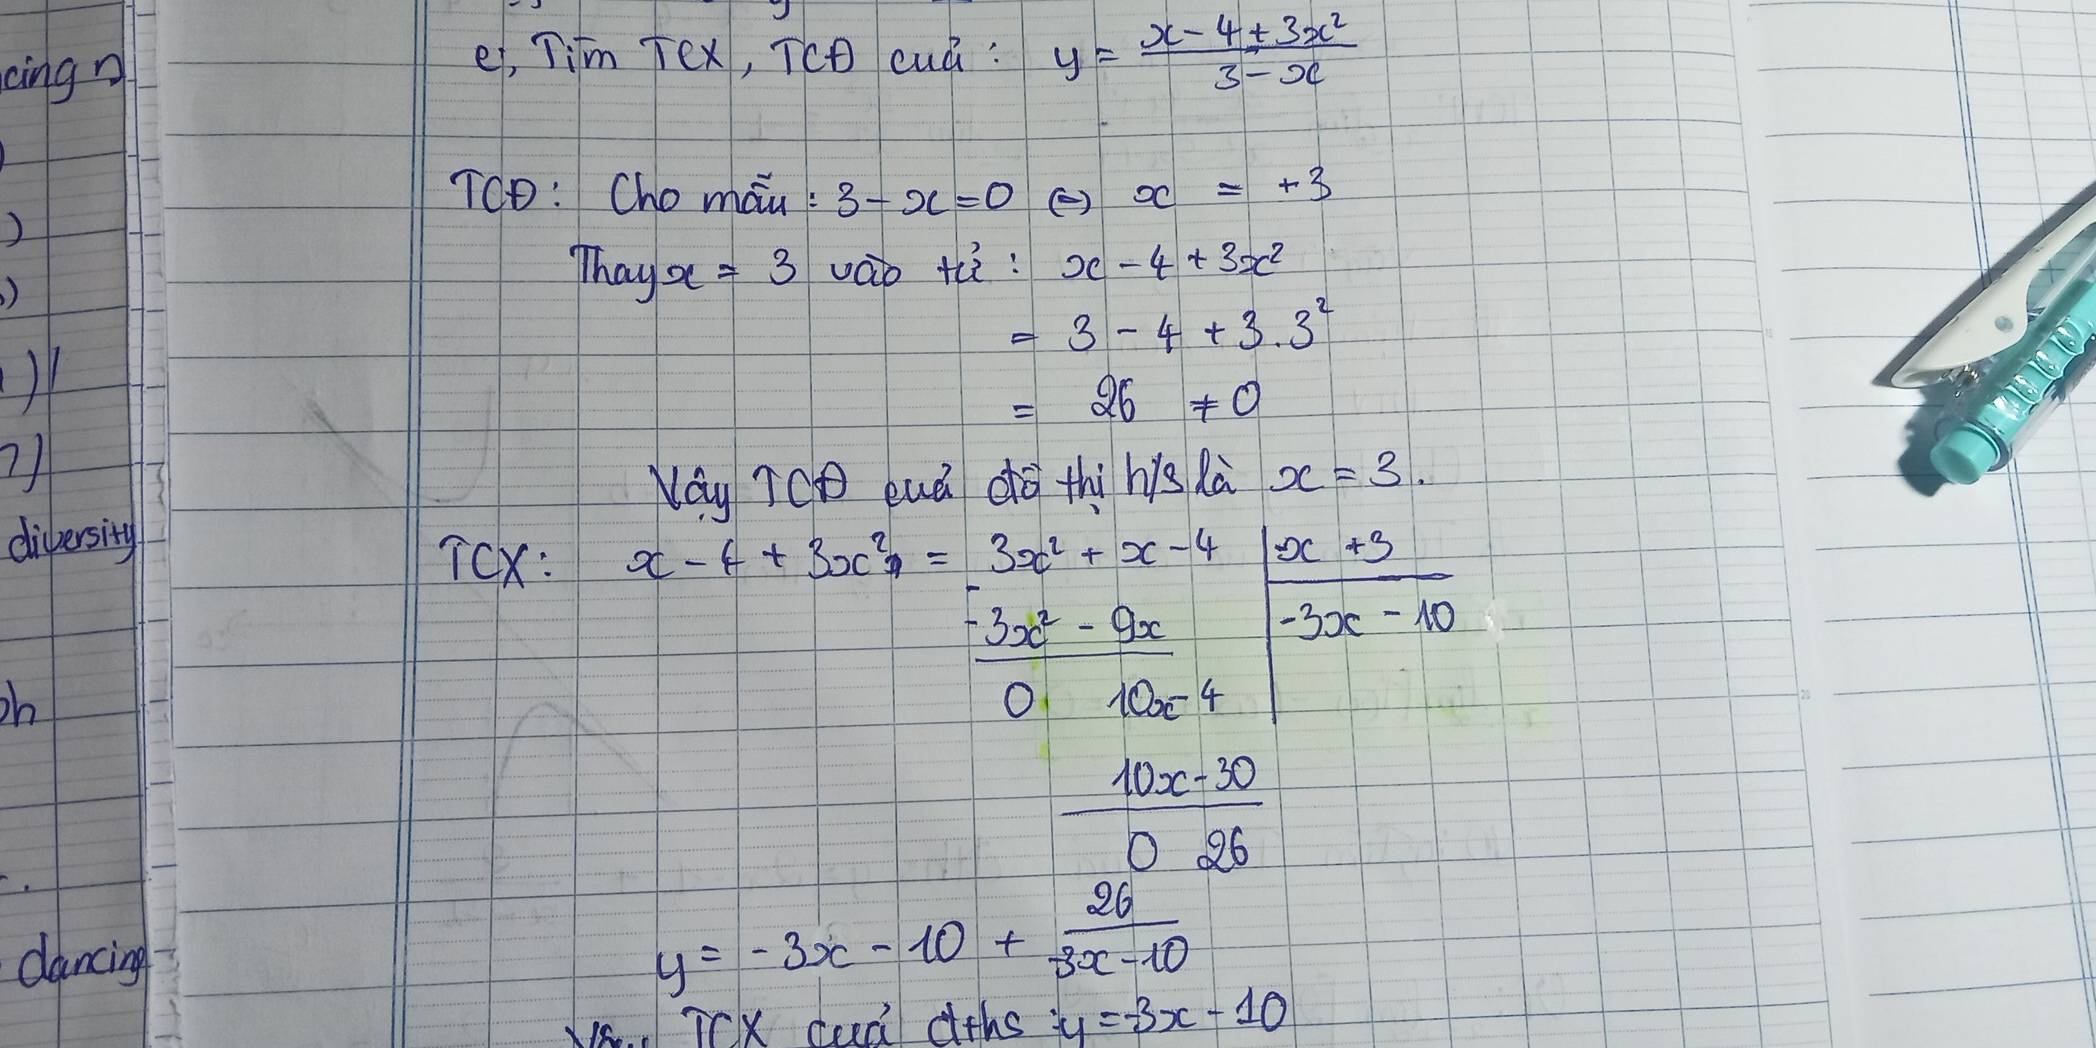 cing n
e, Tìm TCX, TCĐ cuả : y = x - 4 + 3x² / 3 - x
TCĐ: Cho mẫu : 3 - x = 0 (=) x = +3
)
Thay x = 3 vào tử : x - 4 + 3x²
= 3 - 4 + 3.3²
= 26 ≠ 0
Vậy TCĐ cuả đồ thị h/s là x = 3.
diversity
TCX: x - 4 + 3x² = 3x² + x - 4 | -x + 3
- 3x² - 9x | -3x - 10
0 10x - 4
10x - 30
0 26
y = -3x - 10 + 26 / -3x - 10
dancing
TCX cuả đths : y = -3x - 10